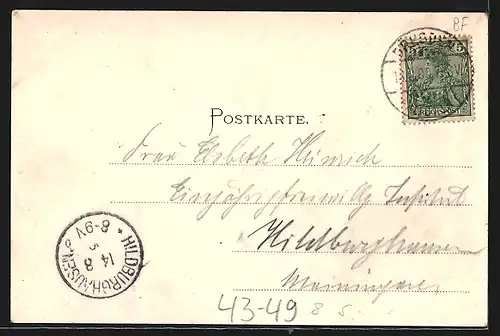 BF
5
REICHSPOST
POSTKARTE.
Frau Elsbeth Hinrich
Einjährigfreiwillig Institut
Hildburghausen
Meiningen
HILDBURGHAUSEN
14 8
8-9V
43-49 8 S.